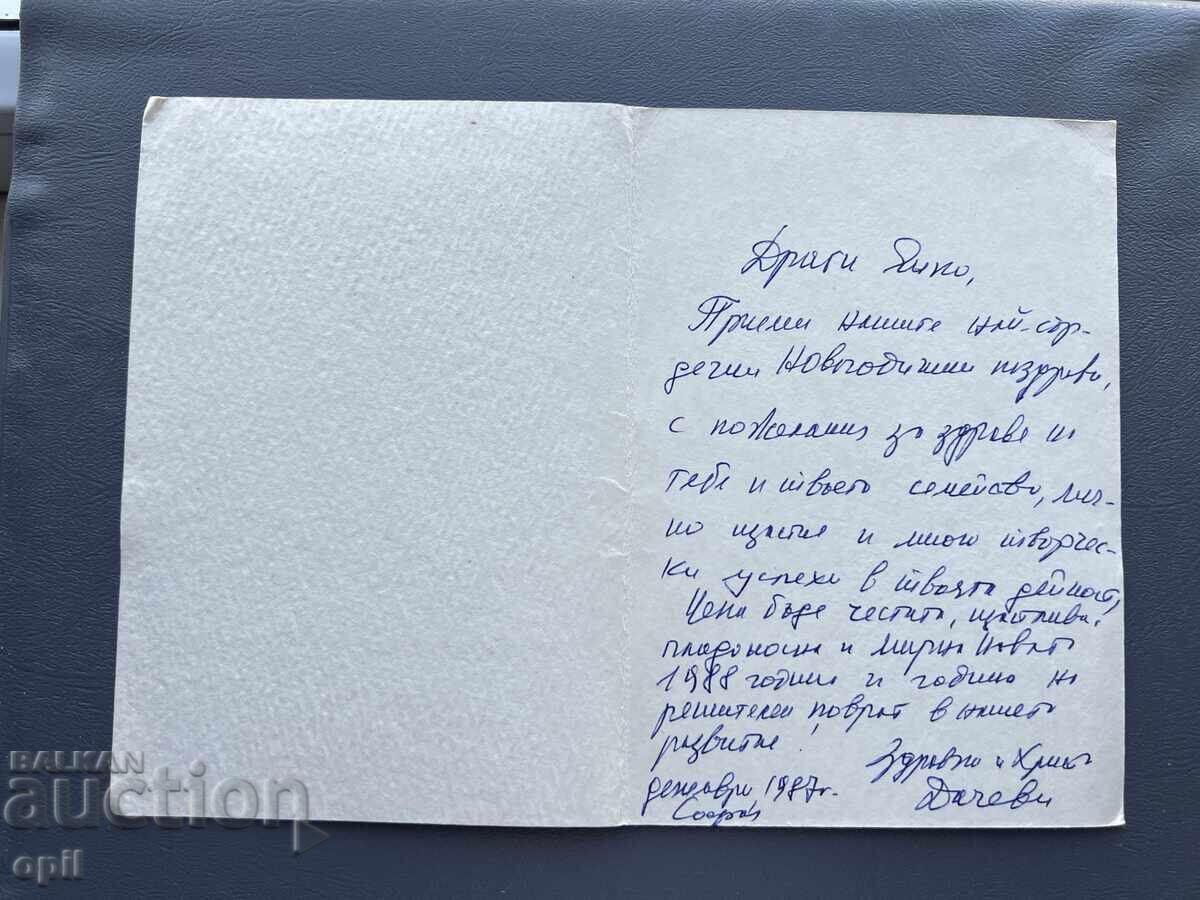 Драги Янко,
Приеми нашите най-сър-
дечни Новогодишни поздрави,
с пожелания за здраве на
тебе и твоето семейство, лич-
но щастие и много творчес-
ки успехи в твоята дейност,
Нека бъде честита, щастлива,
плодоносна и мирна Новата
1988 година и година на
решителен поврат в нашето
развитие!
Здравка и Христо
Дачеви
декември 1987г.
София
BALKAN
auction
opil